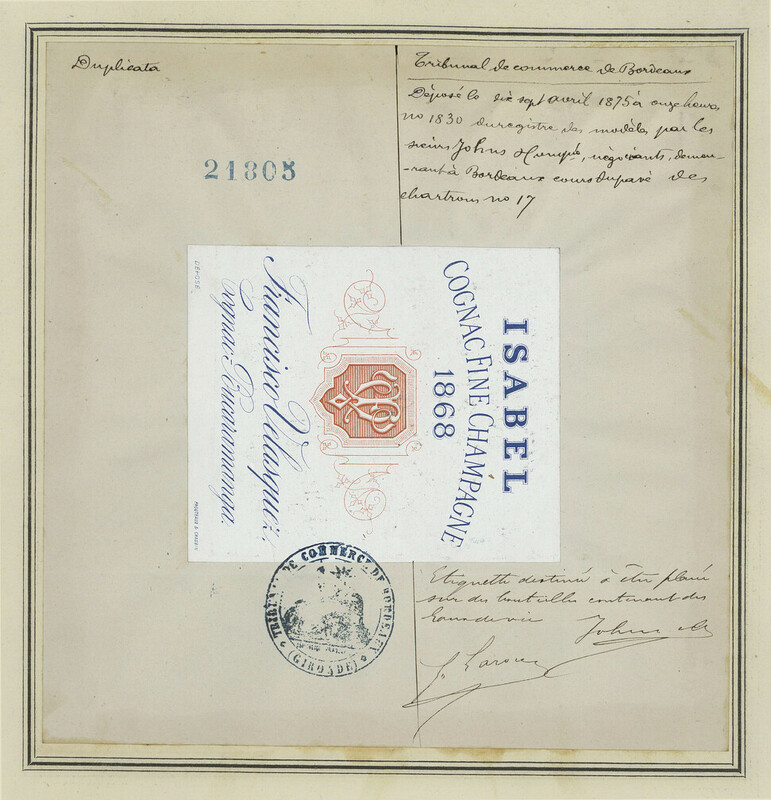 Duplicata
21805
Tribunal de commerce de Bordeaux
Déposé le dix sept avril 1875 à onze heures
no 1830 du registre des modèles par les
sieurs Johns &, négociants, demeu-
-rant à Bordeaux cours du pavé des
chartrons no 17
ISABEL
COGNAC, FINE CHAMPAGNE
1868
Francisco Velasquez,
Cognac Bucaramanga.
DÉPOSÉ
TRIBUNAL DE COMMERCE DE BORDEAUX
(GIRONDE)
Etiquette destinée à être placée
sur des bouteilles contenant des
Eaux de vie
Johns